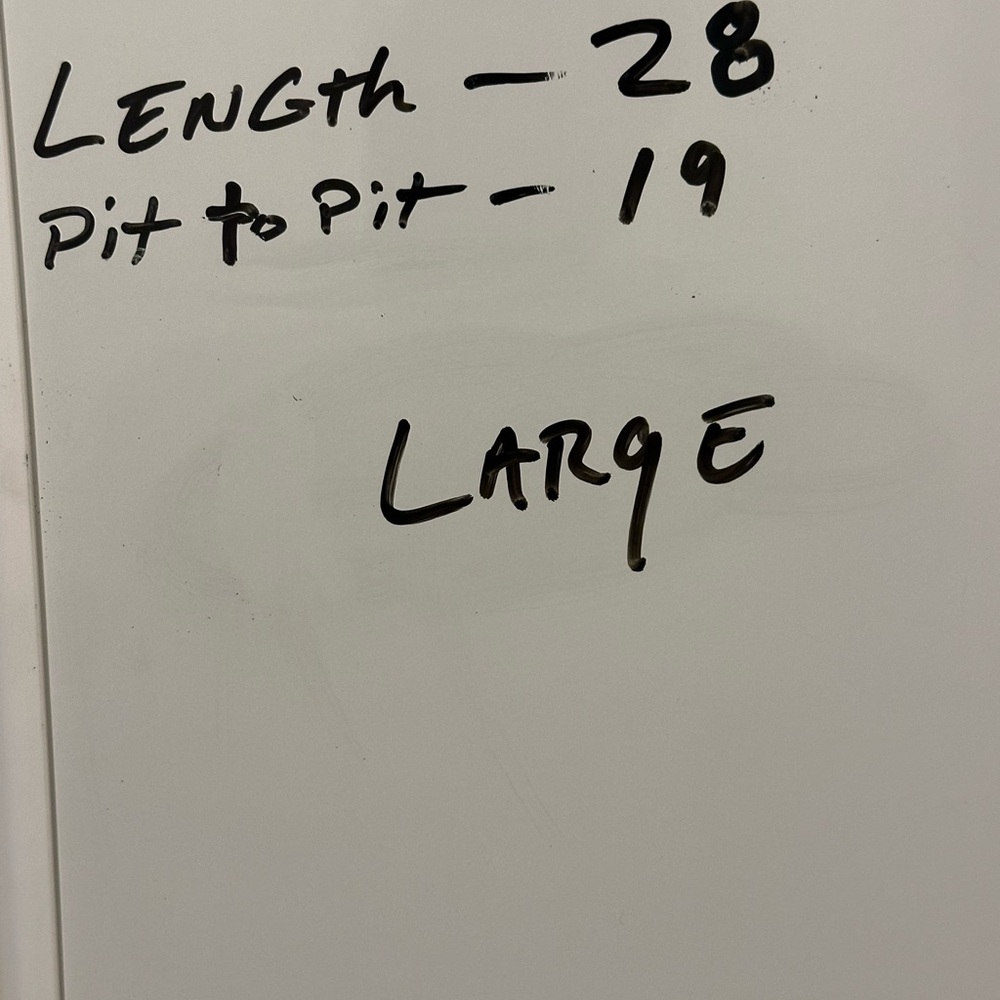 LENGth - 28
Pit to Pit - 19
LARgE